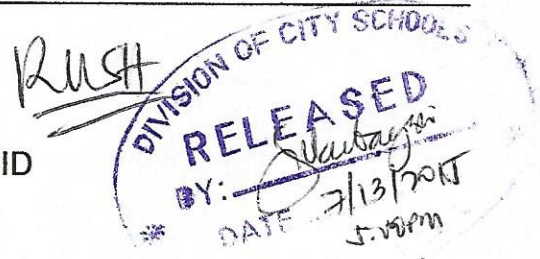 RUSH
DIVISION OF CITY SCHOOLS
RELEASED
ID
BY:
DATE 7/13/2015